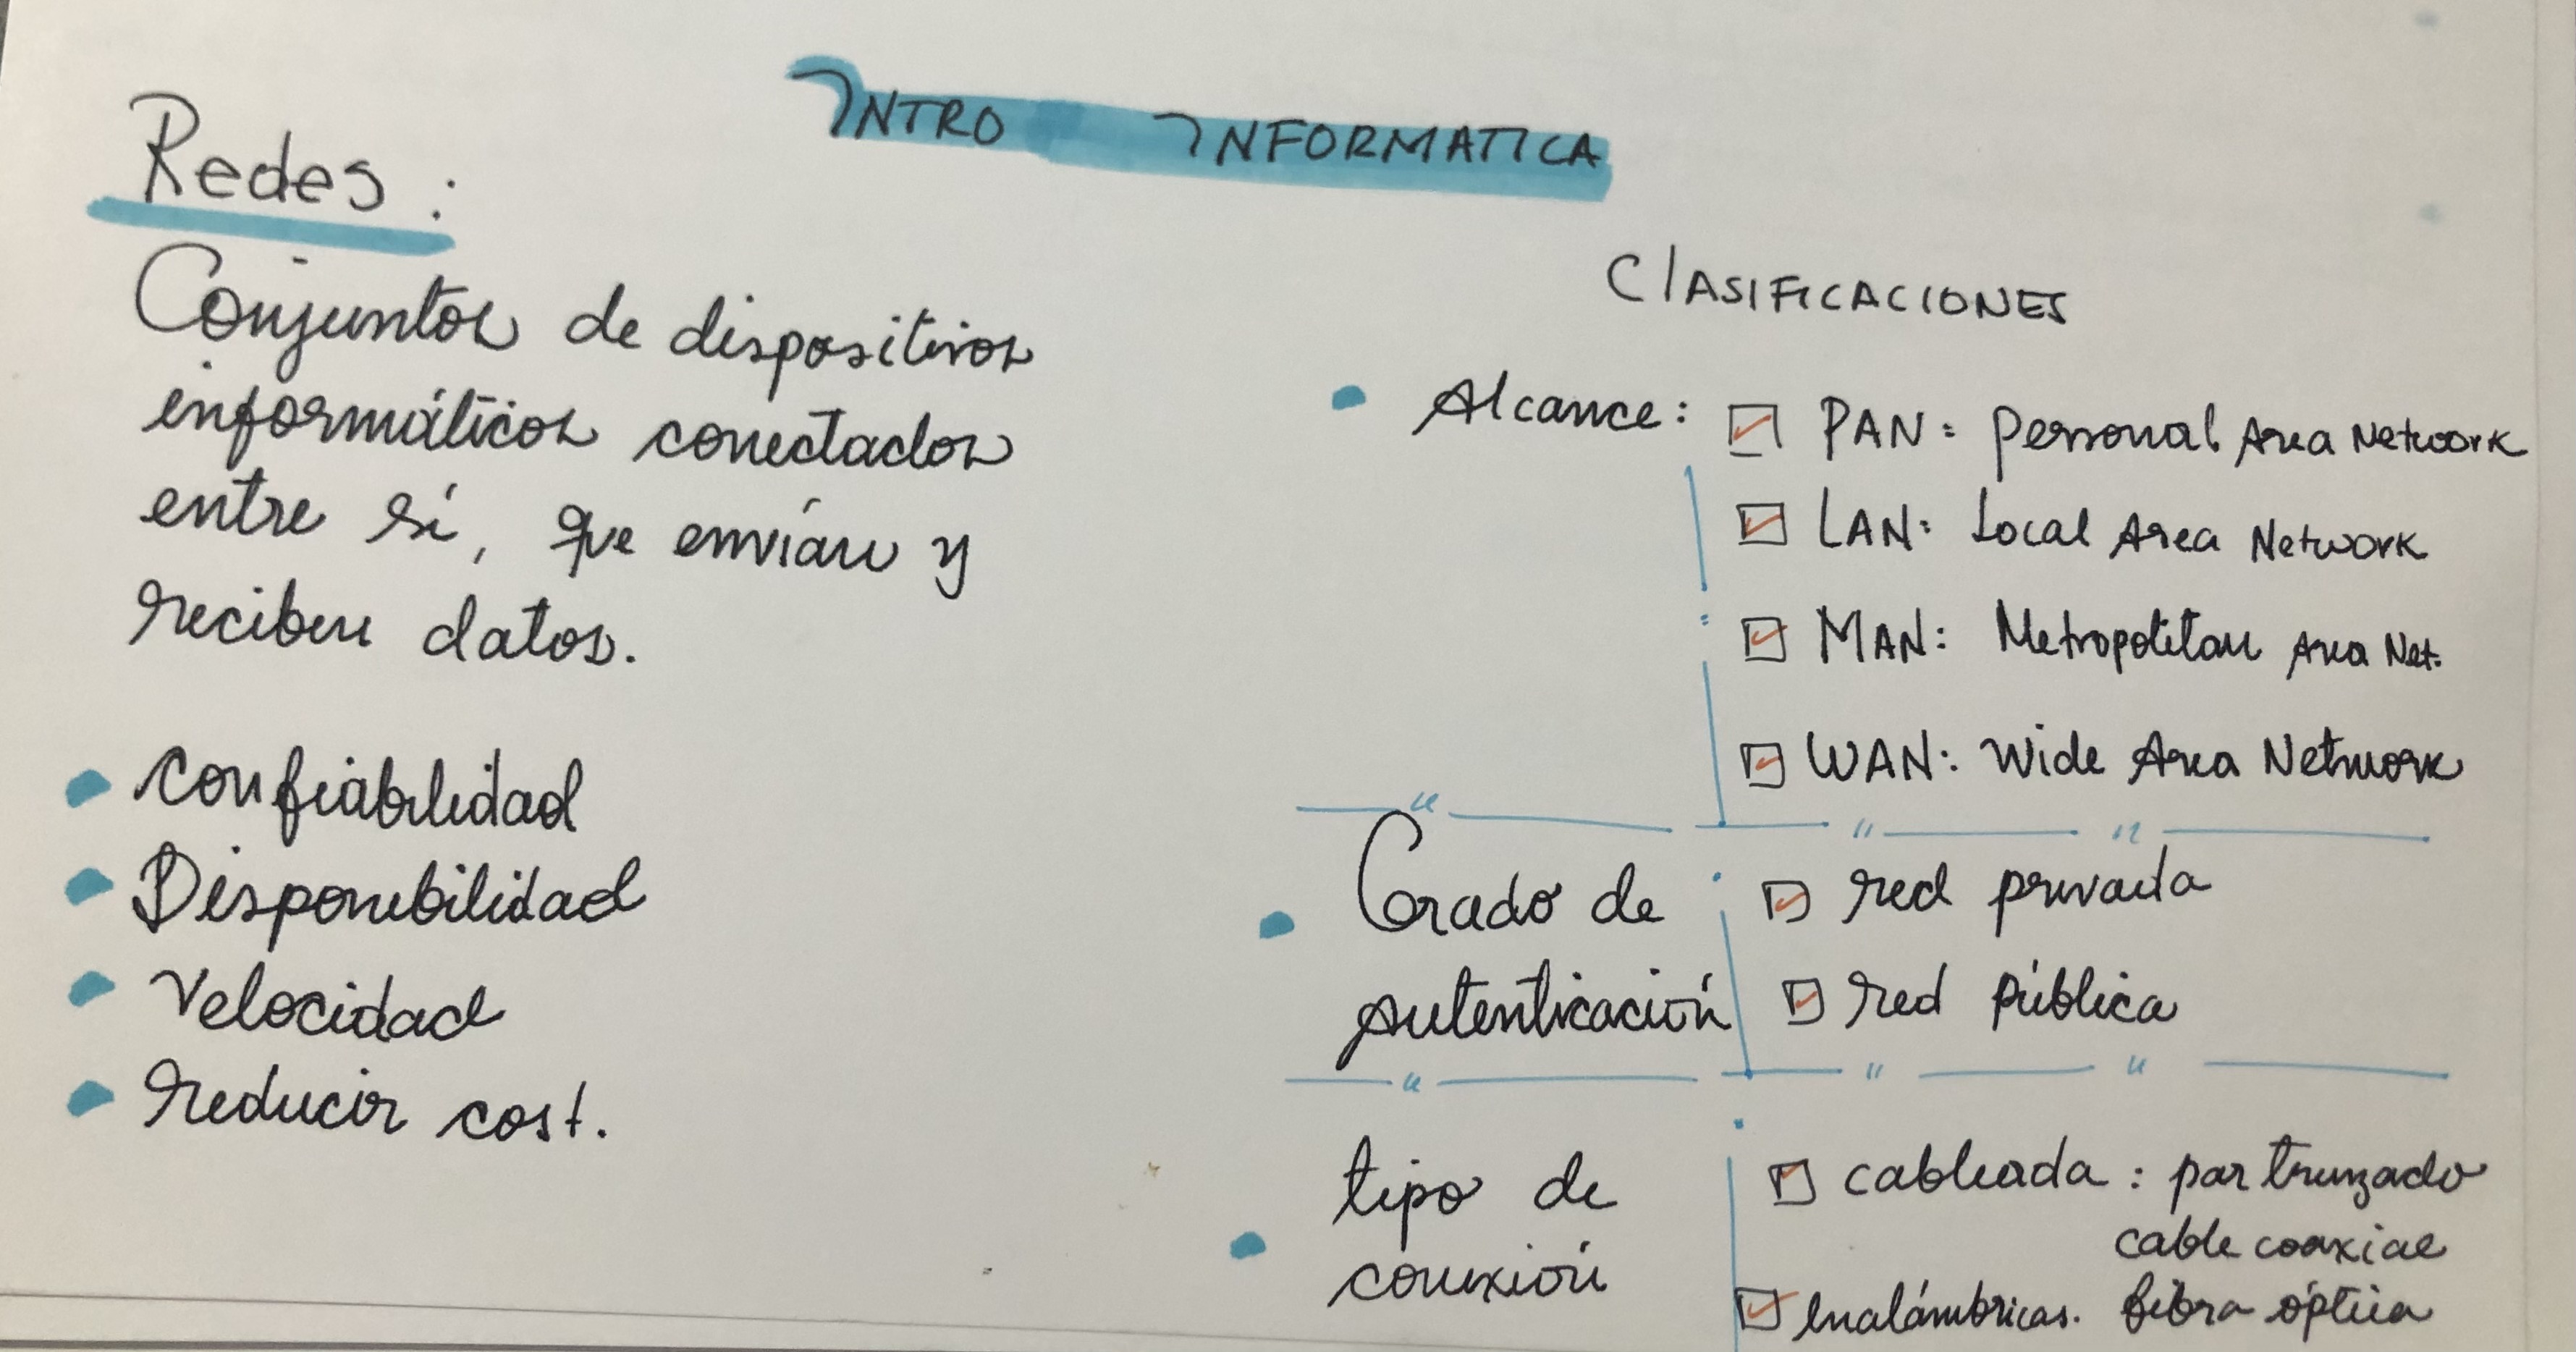 INTRO INFORMATICA
Redes:
Conjuntos de dispositivos
informáticos conectados
entre sí, que envían y
reciben datos.
• confiabilidad
• Disponibilidad
• Velocidad
• reducir cost.
CLASIFICACIONES
• Alcance: ☑ PAN: Personal Area Network
☑ LAN: Local Area Network
☑ MAN: Metropolitan Area Net.
☑ WAN: Wide Area Network
• Grado de ☑ red privada
autenticación ☑ red pública
• tipo de ☑ cableada: par trenzado
conexión cable coaxial
☑ Inalámbricas. fibra óptica